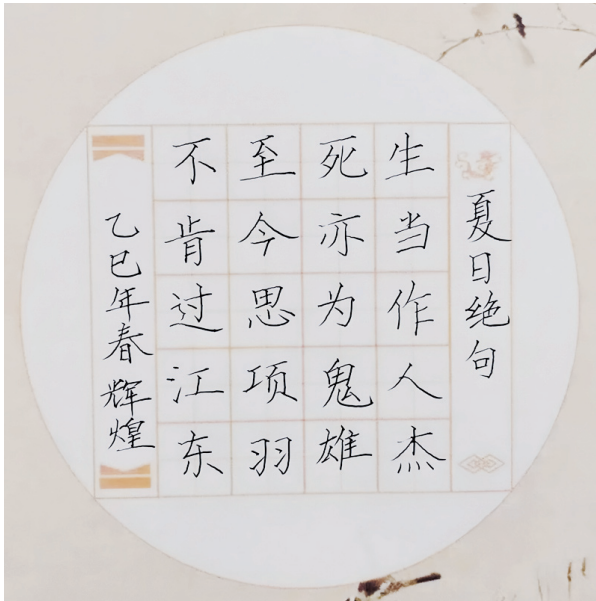 夏日绝句
生当作人杰
死亦为鬼雄
至今思项羽
不肯过江东
乙巳年春辉煌